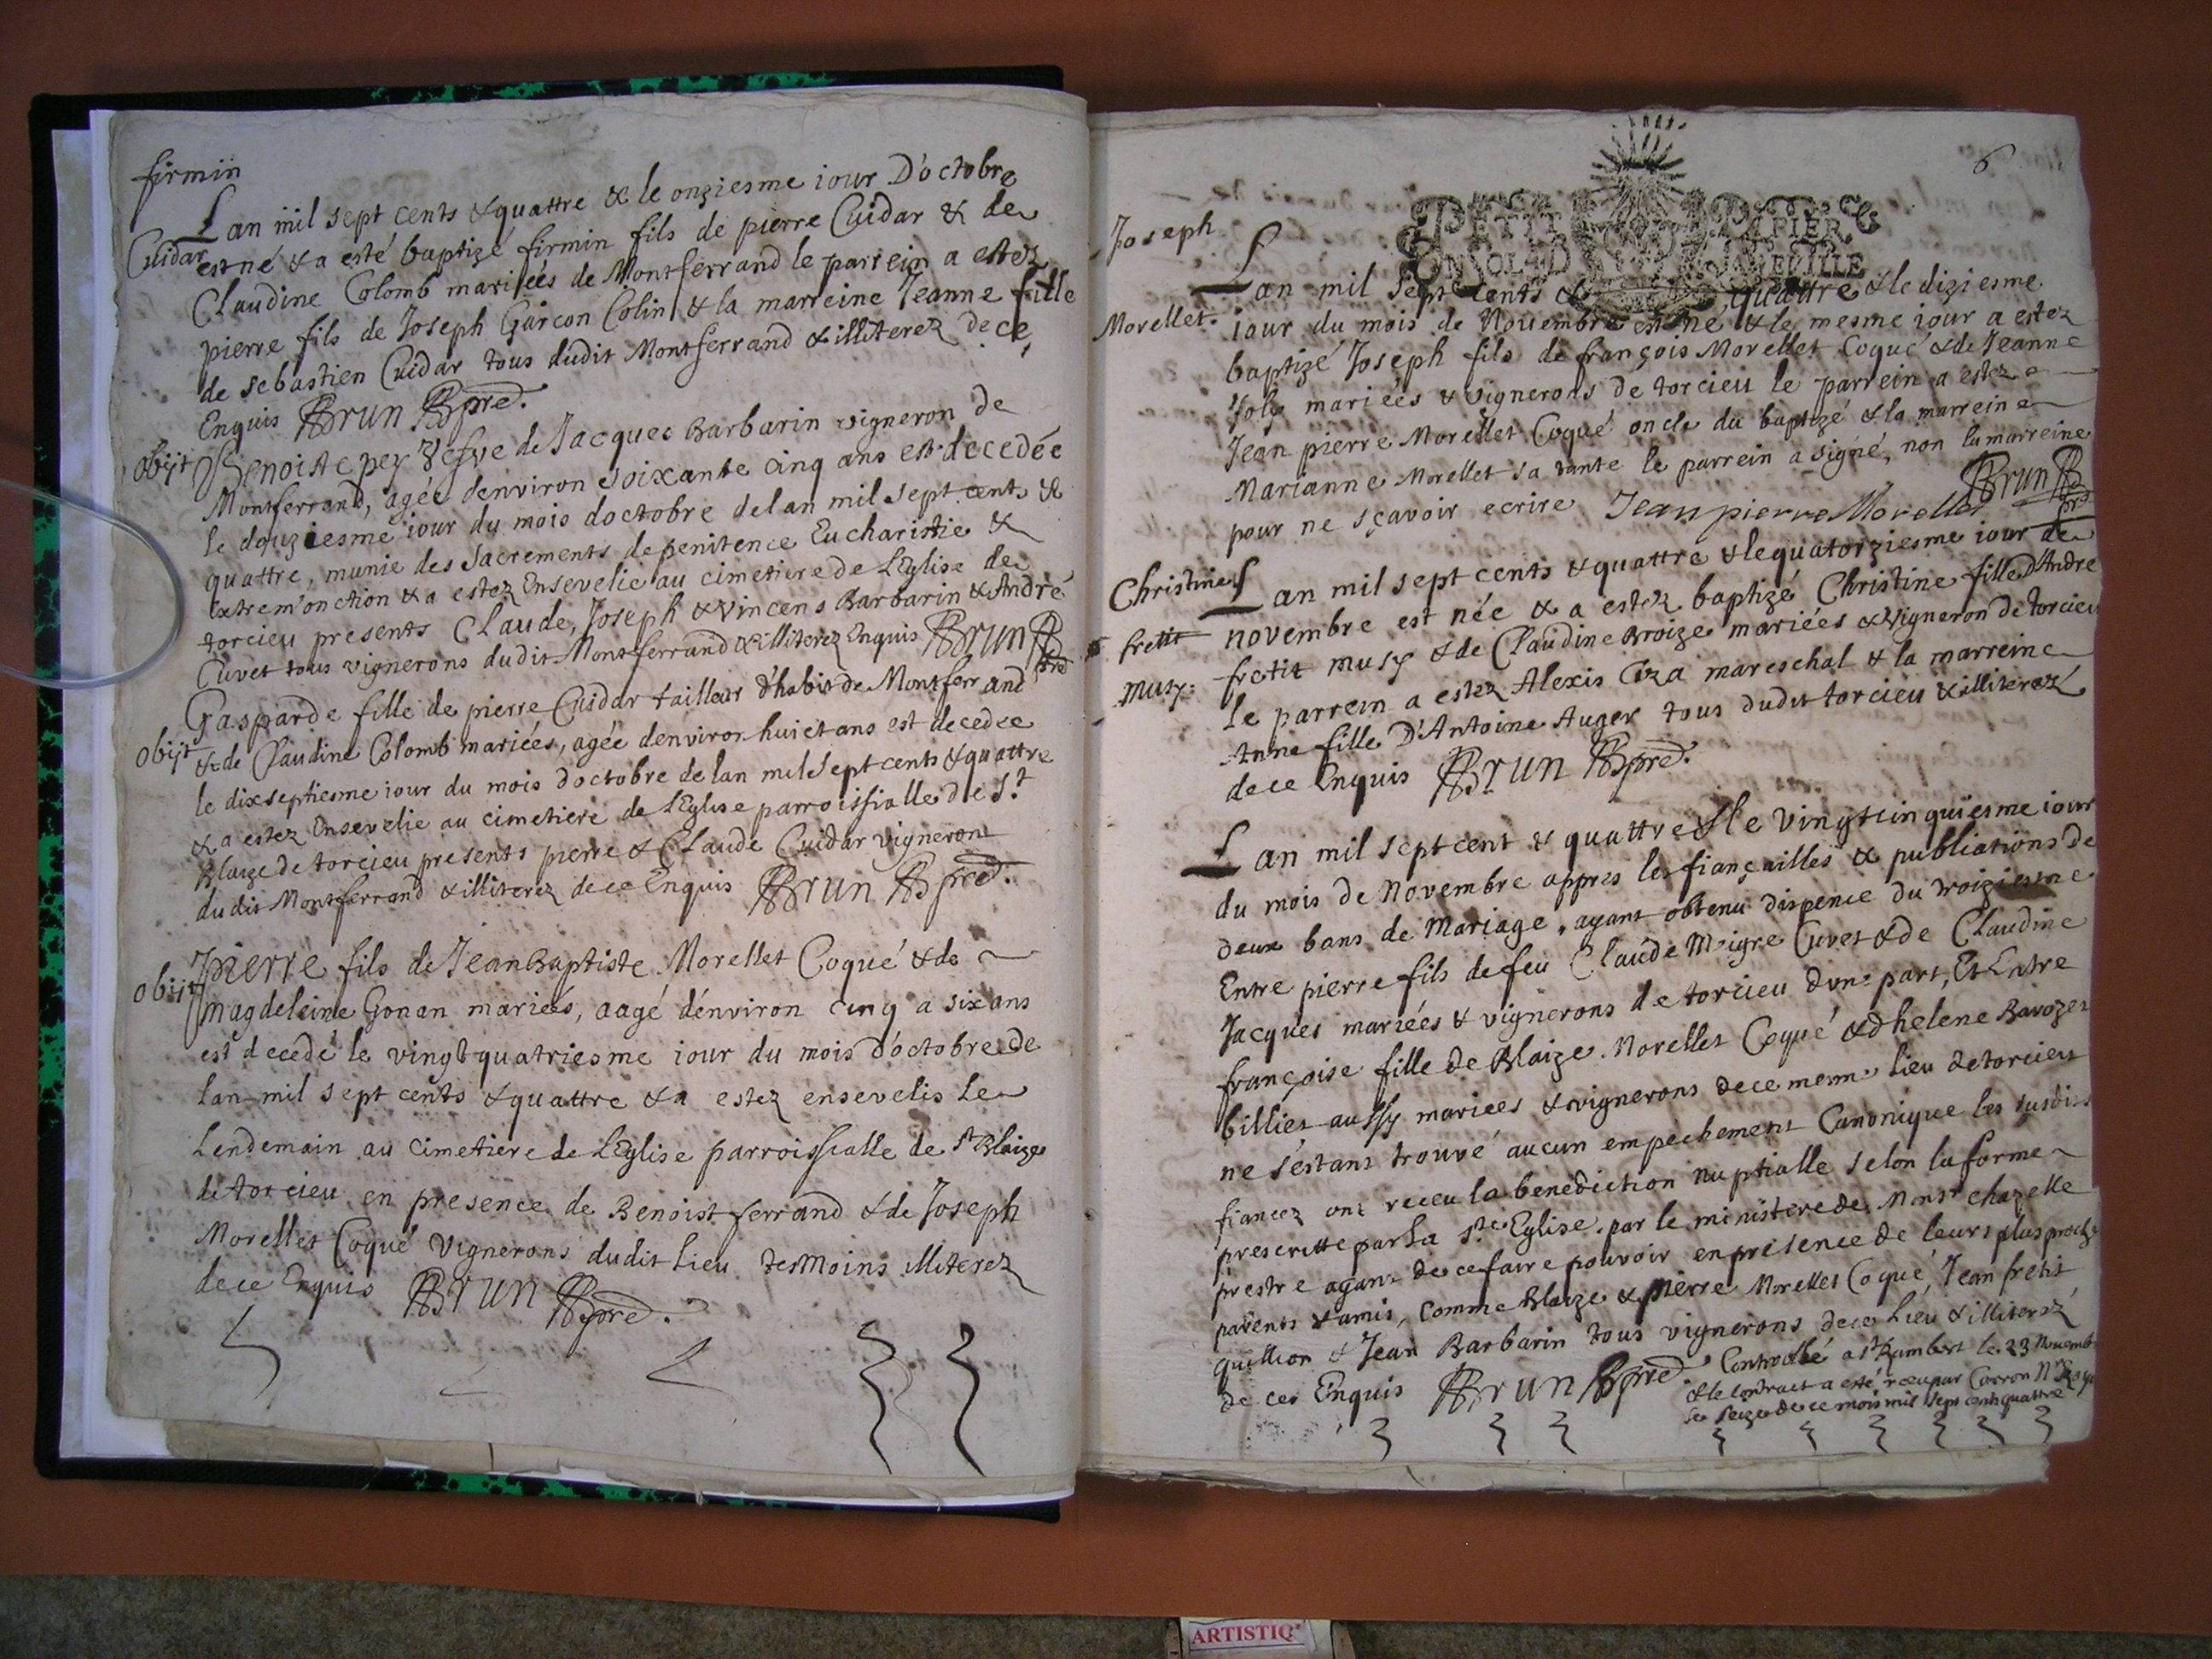 firmin
Lan mil sept cents & quattre & le onziesme iour D'octobre
Cuidar
est né & a esté baptizé firmin fils de pierre Cuidar & de
Claudine Colomb mariées de Montferrand le parrein a estez
pierre fils de Joseph Garcon Colin & la marreine Jeanne fille
de sebastien Cuidar tous dudit Montferrand & illiterez de ce
Enquis Brun pre.
obijt
Benoiste pey vefve de Jacques Barbarin vigneron de
Montferrand, agée denviron soixante cinq ans est decedée
le douziesme iour du mois doctobre de lan mil sept cents &
quattre, munie des Sacrements de penitence Eucharistie &
extrem'onction & a estez Ensevelie au cimetiere de LEglise de
torcieu presents Claude, Joseph & Vincens Barbarin & André
Cuvet tous vignerons dudit Montferrand & illiterez Enquis Brun pre
Gasparde fille de pierre Cuidar tailleur d'habit de Montferrand
obijt
& de Claudine Colomb mariées, agée denviron huict ans est decedée
le dixseptiesme iour du mois doctobre de lan mil sept cents & quattre
& a estez Ensevelie au cimetiere de LEglise parroissialle de St
Blaize de torcieu presents pierre & Claude Cuidar vignerons
dudit Montferrand & illiterez de ce Enquis Brun pre.
obijt
pierre fils de Jean Baptiste Morellet Coqué & de
magdeleine Gonan mariées, aagé d'environ cinq a six ans
est decedé le vingt quatriesme iour du mois d'octobre de
lan mil sept cents & quattre & a estez ensevelis le
Lendemain au Cimetiere de LEglise parroissialle de St Blaize
de torcieu en presence de Benoist ferrand & de Joseph
Morellet Coqué Vignerons dudit Lieu tesmoins illiterez
de ce Enquis Brun pre.
6
PETIT PAPIER
Joseph
Lan mil sept cents & quattre & le diziesme
Morellet.
iour du mois de Novembre est né & le mesme iour a estez
baptizé Joseph fils de françois Morellet Coqué & de Jeanne
Joly mariées & vignerons de torcieu le parrein a estez
Jean pierre Morellet Coqué oncle du baptizé & la marreine
Marianne Morellet sa tante le parrein a signé, non la marreine
pour ne sçavoir ecrire Jean pierre Morellet Brun pre
Christine
Lan mil sept cents & quattre & le quatorziesme iour de
fretit
novembre est née & a estez baptizé Christine fille d'Andre
musy.
fretit musy & de Claudine Broize mariées & Vigneron de torcieu
le parrein a estez Alexis Ciza mareschal & la marreine
Anne fille D'Antoine Auger tous dudit torcieu & illiterez
de ce Enquis Brun pre.
Lan mil sept cent & quattre & le vingt cinquiesme iour
du mois de Novembre appres les fiançailles & publiations de
deux bans de Mariage, ayant obtenu dispence du troiziesme
Entre pierre fils de feu Claude Meigre Cuvet & de Claudine
Jacques mariées & vignerons de torcieu dune part, Et Entre
françoise fille de Blaize Morellet Coqué & dhelene Ravozet
billiet aussy mariees & vignerons de ce mesme Lieu de torcieu
ne s'estant trouvé aucun empechement Canonique les susdits
fiancez ont receu la benediction nuptialle selon la forme
prescritte par La Ste Eglise par le ministere de Monsr chazelle
prestre ayant de ce faire pouvoir en presence de leurs plus proches
parents & amis, comme Blaize & pierre Morellet Coqué, Jean fretit
quillion & Jean Barbarin tous vignerons de ce Lieu & illiterez
de ces Enquis Brun pre Controollé a St Rambert le 23 Novemb
& le contract a esté receu par Carron Nre Royal
le seize de ce mois mil sept cents quattre
ARTISTIQ